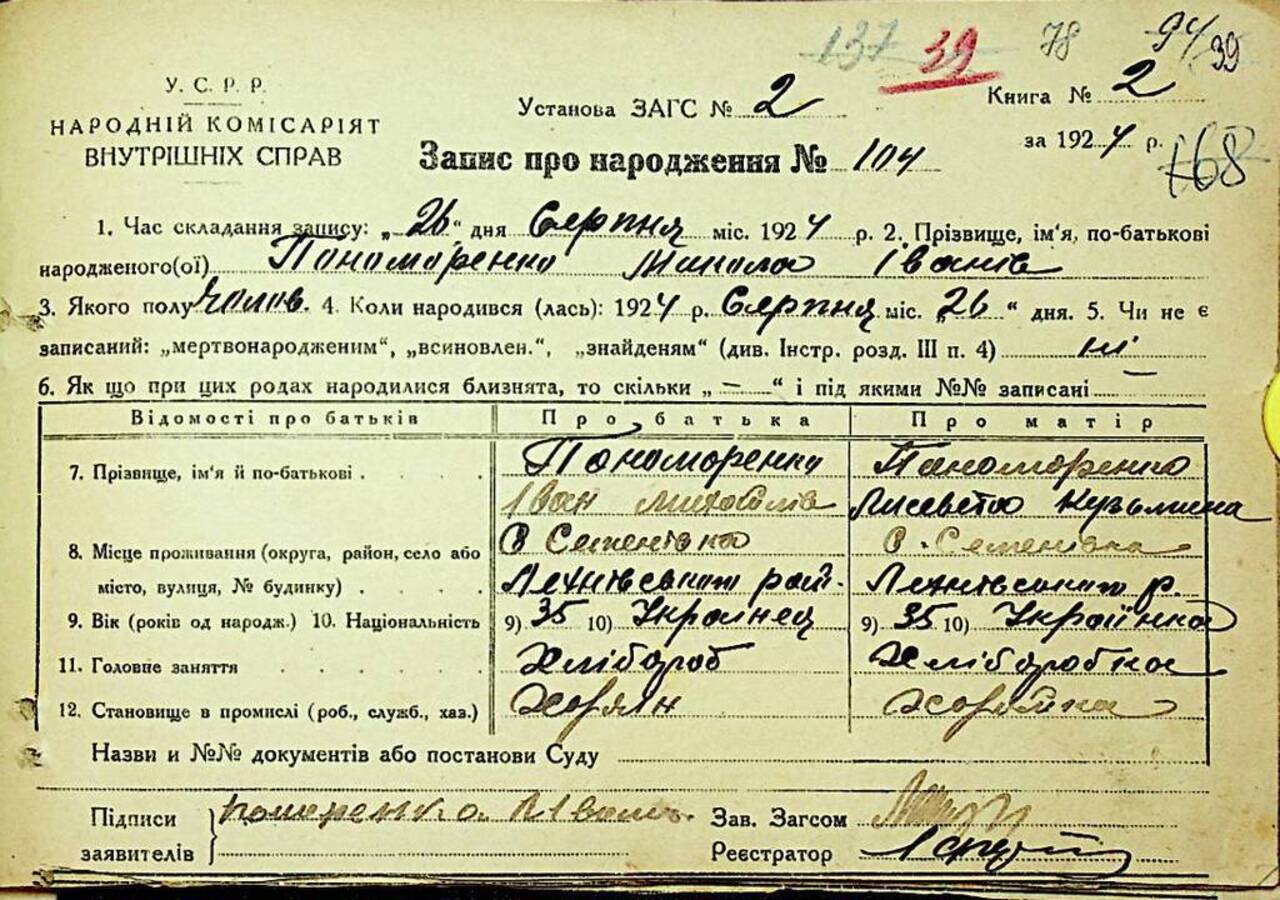 137 39 78 94 39
У. С. Р. Р.
НАРОДНІЙ КОМІСАРІЯТ
ВНУТРІШНІХ СПРАВ
Установа ЗАГС № 2
Книга № 2
за 1924 р.
168
Запис про народження № 104
1. Час складання запису: „26“ дня Серпня міс. 1924 р. 2. Прізвище, ім'я, по-батькові
народженого(ої) Пономоренко Микола Іванів
3. Якого полу чолов. 4. Коли народився (лась): 1924 р. Серпня міс. „26“ дня. 5. Чи не є
записаний: „мертвонародженим“, „всиновлен.“, „знайденям“ (див. Інстр. розд. III п. 4) ні
6. Як що при цих родах народилися близнята, то скільки „—“ і під якими №№ записані —
Відомості про батьків Про батька Про матір
7. Прізвище, ім'я й по-батькові . . . . Пономоренко Пономоренко
Іван Михайлів Лисавета Кузьмина
8. Місце проживання (округа, район, село або С Семенівка С. Семенівка
місто, вулиця, № будинку) . . . . рай. р.
9. Вік (років од народж.) 10. Національність 9) 35 10) Українец 9) 35 10) Українка
11. Головне заняття . . . . . Хлібороб Хліборобка
12. Становище в промислі (роб., служб., хаз.) Хозяїн Хозяйка
Назви и №№ документів або постанови Суду
Підписи Зав. Загсом
заявителів Реєстратор